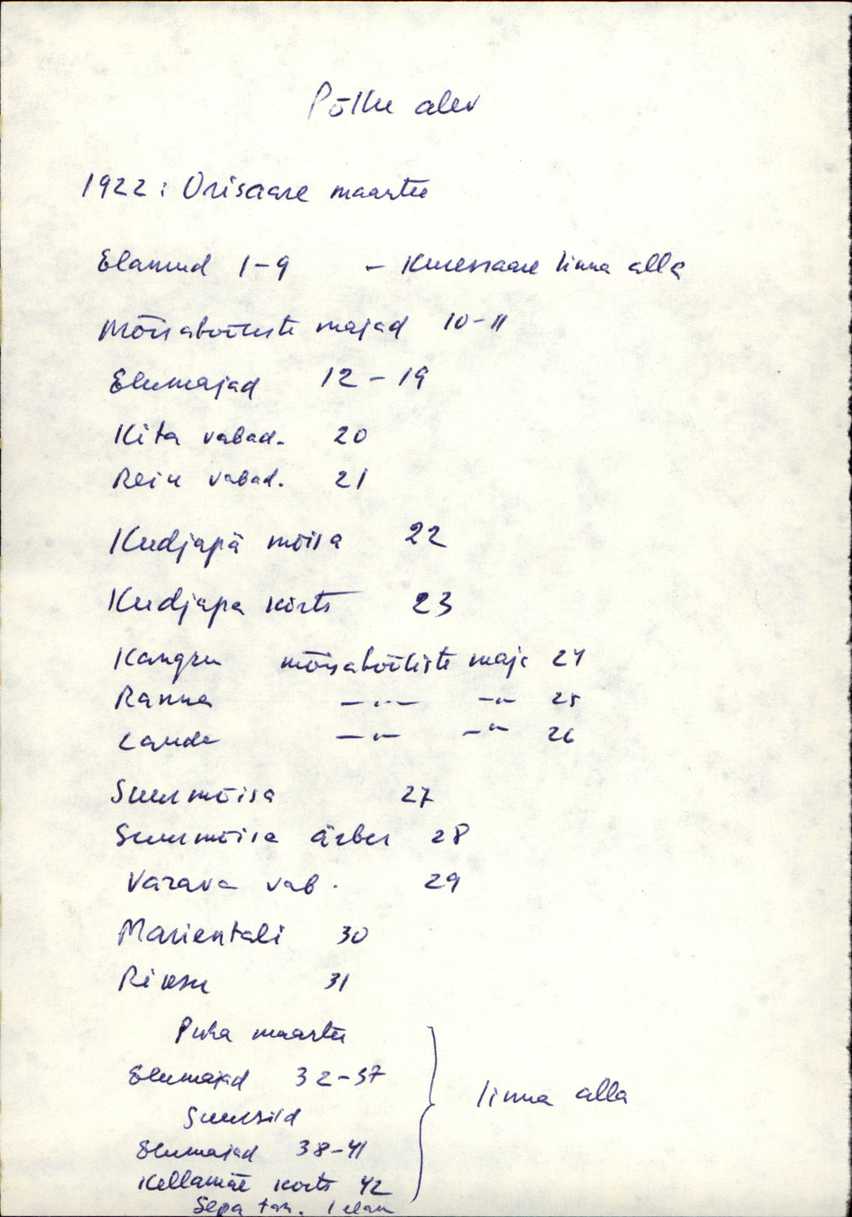 Põllu alev
1922: Orisaare maantee
Elamud 1-9 - Kuressaare linna alla
Mõisatööliste majad 10-11
Elumajad 12-19
Kita vabad. 20
Rein vabad. 21
Kudjapä mõisa 22
Kudjapa kõrts 23
Kangru mõisatööliste maja 24
Ranna -"- -"- 25
Lauda -"- -"- 26
Suurmõisa 27
Suurmõisa ärber 28
Varava vab. 29
Marientali 30
Riksu 31
Piha maantee
Elumajad 32-37
Suursild
Elumajad 38-41
linna alla
Kellamäe kõrts 42
Sepa tal. 1 elam